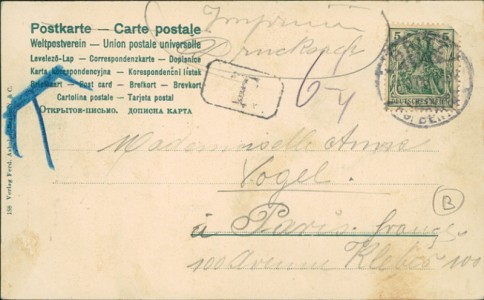 Postkarte – Carte postale
Weltpostverein – Union postale universelle
Levelező-Lap – Correspondenzkarte – Dopisnice
Karta korespondencyjna – Korespondenční lístek
Briefkaart – Post card – Brefkort – Brevkort
Cartolina postale – Tarjeta postal
Открытое-письмо. дописна карта
Imprimé
Drucksach
5 5
DEUTSCHES REICH
T
Mademoiselle Anna
Vogel.
à Paris.
100 Avenue Kleber 100
B
Verlag Ferd.